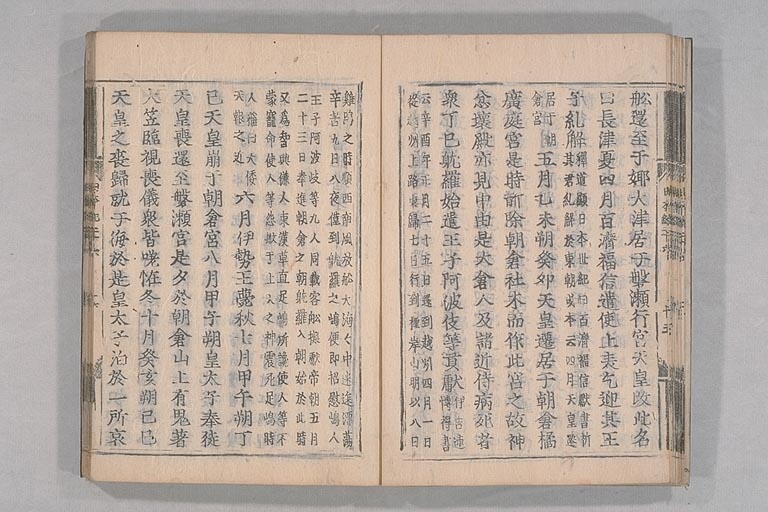 舩還至于娜大津居于磐瀬行宮天皇改此名
曰長津夏四月百濟福信遣使上表乞迎其王
子糺解釋道顯日本世記曰百濟福信獻書祈其君糺解於東朝或本云四月天皇遷
居于朝倉宮五月乙未朔癸卯天皇遷居于朝倉橘
廣庭宮是時斮除朝倉社木而作此宮之故神
忿壞殿亦見宮中由是大舍人及諸近侍病死者
衆丁巳耽羅始遣王子阿波伎等貢獻伊吉連博得書
云辛酉年正月二十五日還到越州四月一日
從越州上路東歸七日行到檉岸山明以八日
鷄鳴之時順西南風放舩大海海中迷途漂蕩
辛苦九日八夜僅到耽羅之嶋便即招慰嶋人
王子阿波岐等九人同載客舩擬獻帝朝五月
二十三日奉進朝倉之朝耽羅入朝始於此時
又爲智興傔人東漢草直足嶋所讒使人等不
蒙寵命使人等怨徹于上天之神震死足嶋時
人稱曰大倭天報之近六月伊勢王薨秋七月甲午朔丁
巳天皇崩于朝倉宮八月甲子朔皇太子奉徙
天皇喪還至磐瀬宮是夕於朝倉山上有鬼著
大笠臨視喪儀衆皆嗟恠冬十月癸亥朔己巳
天皇之喪歸就于海於是皇太子泊於一所哀